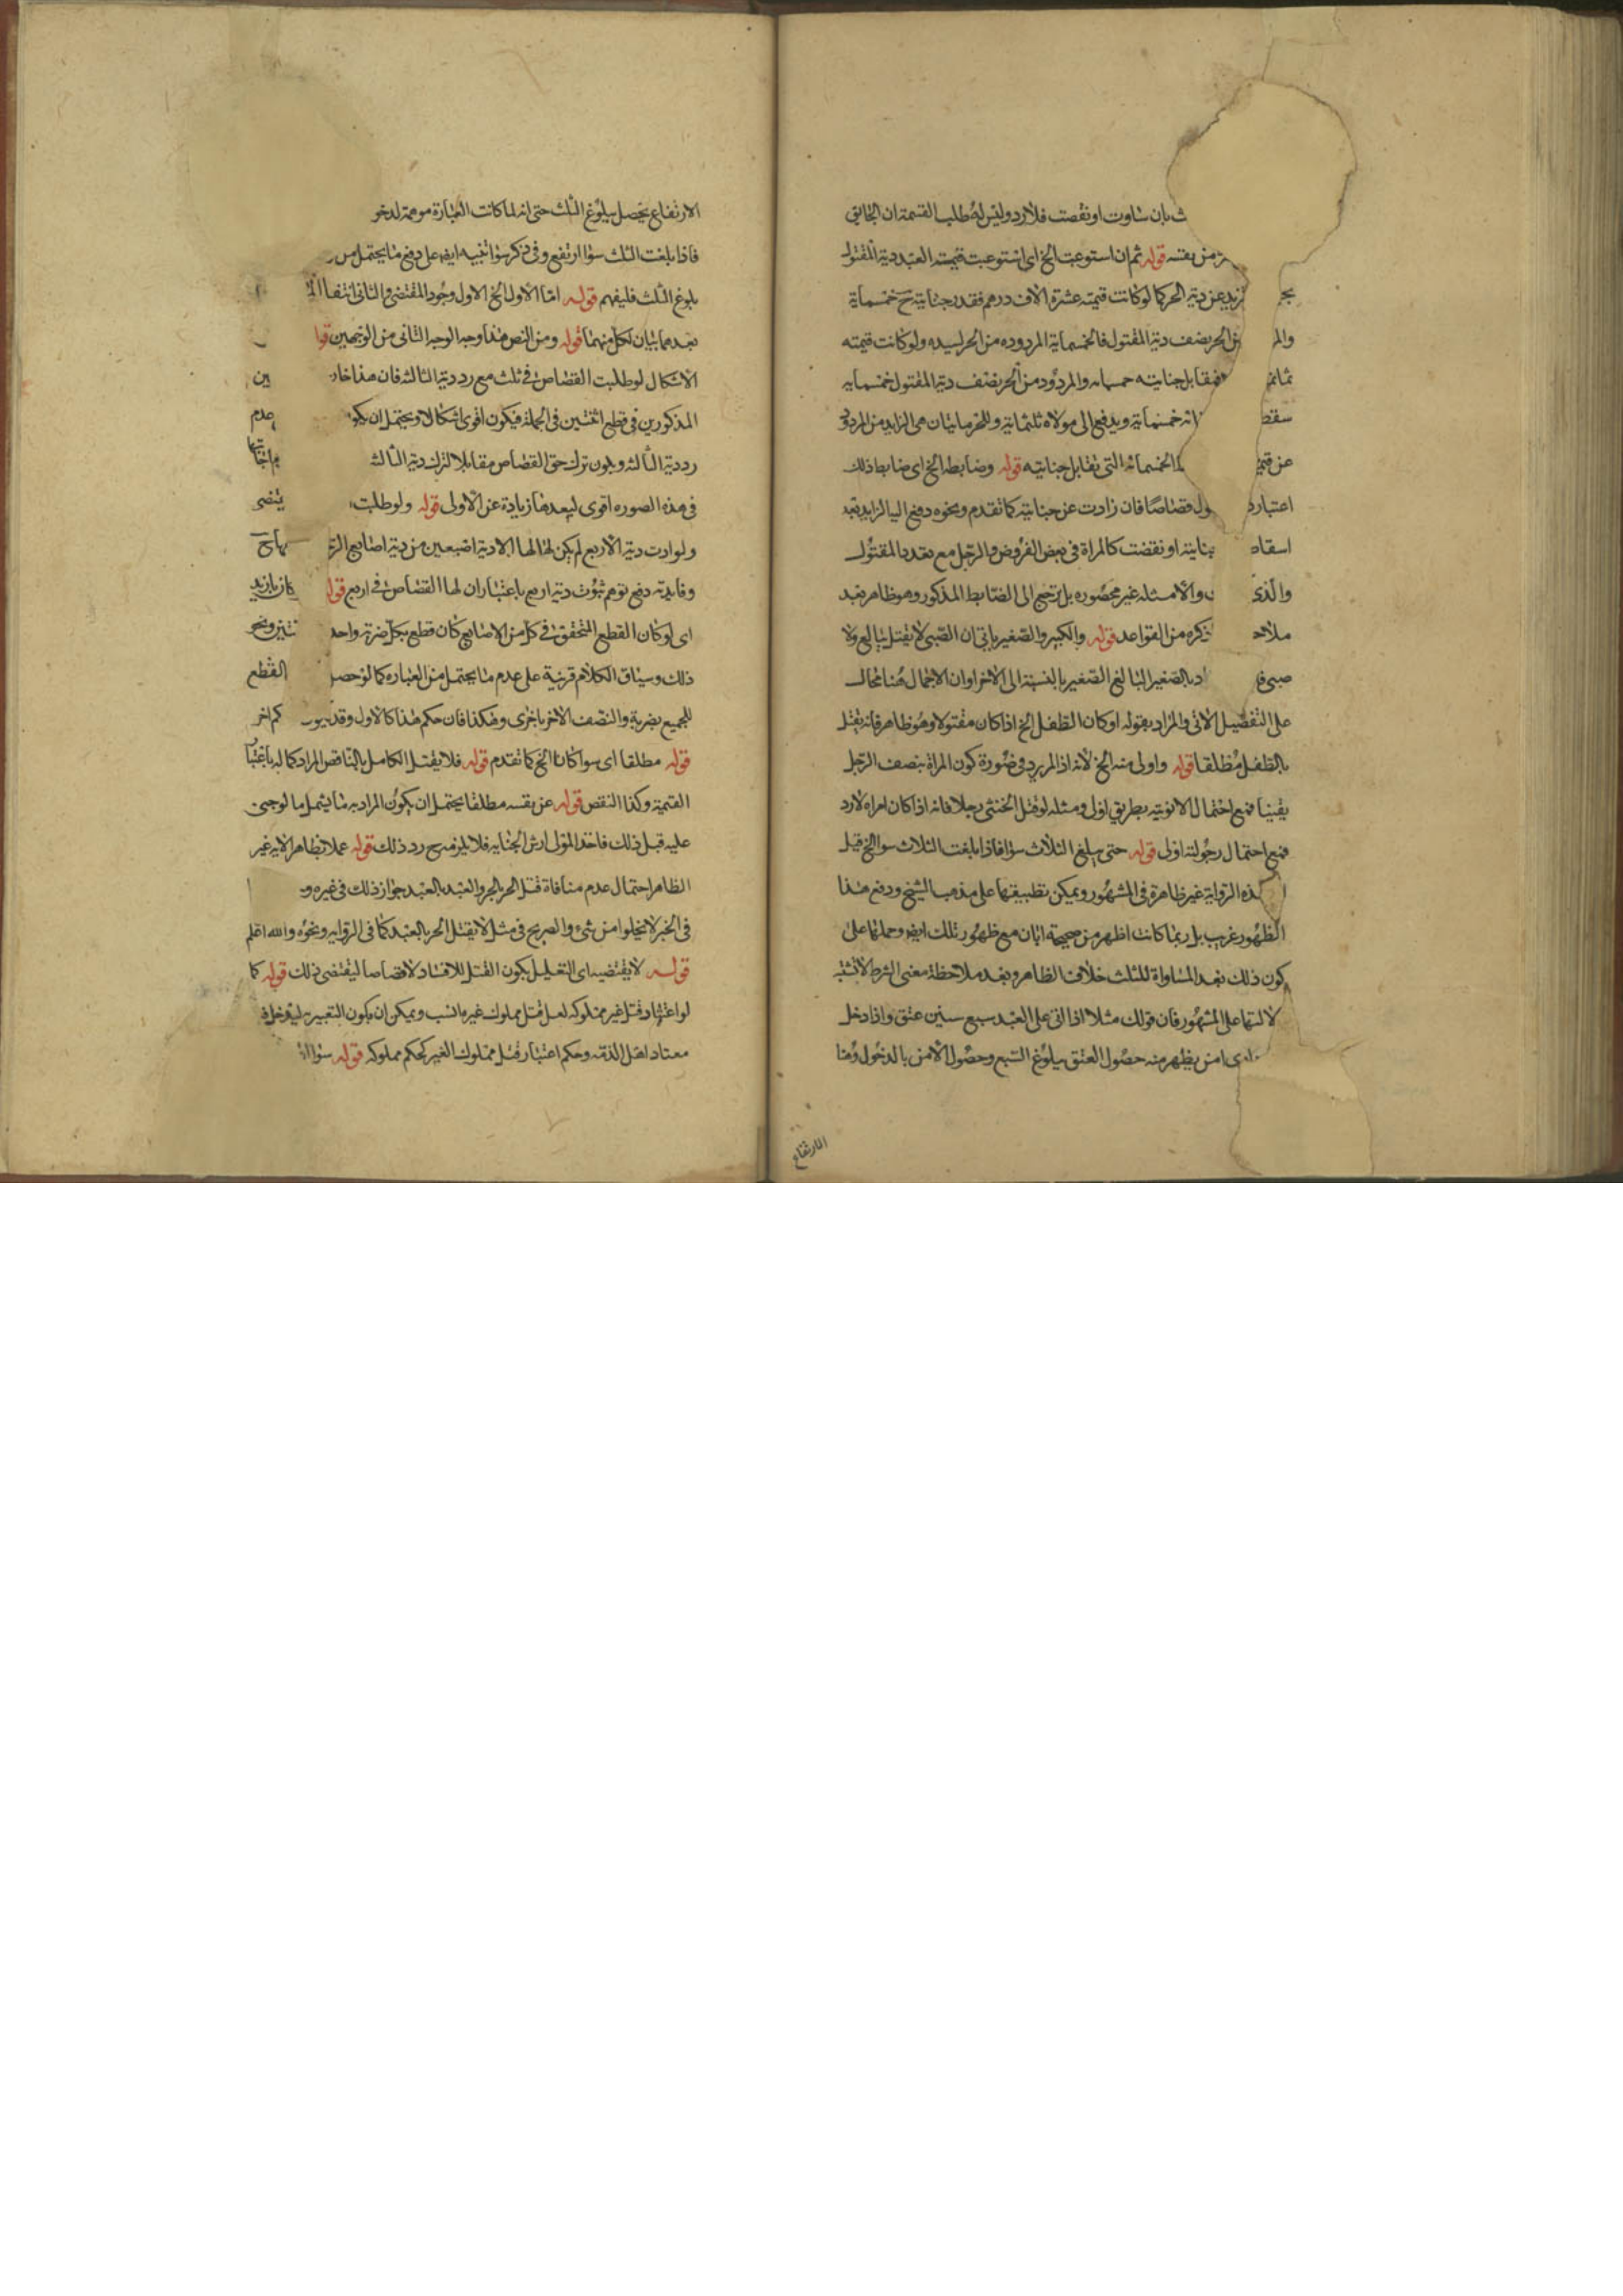 بان ساوت او نقصت فلا رد وليس له طلب القسمة ان الخ
من نفسه قوله ثم ان استوعبت الخ اى استوعبت قيمته العبد دية المقتول
يزيد عن دية الحر كما لو كانت قيمته عشرة الاف درهم فقدر جنايته ح خمسماية
وال من الحر نصف دية المقتول فالخمسماية المردوده من الحر لسيده ولو كانت قيمته
ثمانم فيقابل جنايته والمردود من الحر نصف دية المقتول خمسمايه
سقط خمسماية ويدفع الى مولاه ثلثماية وللحر مايتان هى الزايد من المردود
عن قيم الخمسمائه التى تقابل جنايته قوله وضابطه الخ اى ضابط ذلك
اعتبار قصاصا فان زادت عن جنايته كما تقدم ونحوه دفع اليه الزايد بعد
اسقاط جنايته او نقصت كالمراة فى بعض الفروض والرجل مع تعدد المقتول
والذى والامثله غير محصوره بل ترجع الى الضابط المذكور وهو ظاهر بعد
ملاحظه ذكره من القواعد قوله والكبير والصغير ياتى ان الصبى لا يقتل ببالغ ولا
صبى بالصغير البالغ الصغير بالنسبة الى الاخر او ان الاجمال هنا محال
على التفصيل الاتى والمراد بقوله او كان الطفل الخ اذا كان مقتولا وهو ظاهر فانه يقتل
بالطفل مطلقا قوله واولى منه الخ لانه اذا لم يرد فى صورة كون المراة بنصف الرجل
يقينا فمع احتمال الانوثيه بطريق اولى ومثله لو قتل الخنثى رجلا فانه اذا كان امراه لا رد
فمع احتمال رجوليته اولى قوله حتى يبلغ الثلاث سوا فاذا بلغت الثلاث سوا الخ قيل
هذه الرواية غير ظاهرة فى المشهور ويمكن تطبيقها على مذهب الشيخ ودفع هذا
الظهور غريب بل ربما كانت اظهر من صحيحة ابان مع ظهور تلك ايضا وحملها على
كون ذلك بعد المساواة للثلث خلاف الظاهر وبعد ملاحظة معنى الشرط لا تشتبه
لالتها على المشهور فان قولك مثلا اذا اتى على العبد سبع سنين عتق واذا دخل
دارى امن يظهر منه حصول العتق ببلوغ السبع وحصول الامن بالدخول وهنا
الارتفاع
الارتفاع يحصل ببلوغ الثلث حتى انه لما كانت العبارة موهمة لدخو
فاذا بلغت الثلث سوا ارتفع وفى ذكر سوا تنبيه ايضا على دفع ما يحتمل من
بلوغ الثلث فليفهم قوله اما الاول الخ الاول وجود المقتضى والثانى انتفا
بعدهما بيان لكل منهما قوله ومن النص هذا وجه الوجه الثانى من الوجهين قوله
الاشكال لو طلبت القصاص فى ثلث مع رد دية الثالثه فان هذا ين
المذكورين فى قطع اثنتين فى الجملة فيكون اقوى اشكالا ويحتمل ان يكو عدم
رد دية الثالثه ويكون ترك حق القصاص مقابلا لترك دية الثالثه
فى هذه الصوره اقوى لبعدها زيادة عن الاولى قوله ولو طلبت يقتضى
ولو ارادت دية الاربع لم يكن لها الا دية اصبعين من دية اصابع
وفايدته دفع توهم ثبوت دية اربع باعتبار ان لها القصاص فى اربع قوله كان بازيد
اى لو كان القطع المتحقق فى كل من الاصابع كان قطع بكل ضربة واحد ثنتين ونحو
ذلك وسياق الكلام قرينة على عدم ما يحتمل من العباره كما لو حصل القطع
للجميع بضربة والنصف الاخر باخرى وهكذا فان حكم هذا كالاول وقد كم اخر
قوله مطلقا اى سوا كانا الخ كما تقدم قوله فلا يقتل الكامل بالناقص المراد كماله باعتبا
القيمة وكذا النقص قوله عن نفسه مطلقا يحتمل ان يكون المراد به ما يشمل ما لو جنى
عليه قبل ذلك فاخذ المولى ارش الجنايه فلا يلزمه ح رد ذلك قوله عملا بظاهر الايه غير
الظاهر احتمال عدم منافاة قتل الحر بالحر والعبد بالعبد جواز ذلك فى غيره و
فى الخبر لا يخلوا من شىء والصريح فى مثل لا يقتل الحر بالعبد كما فى الروايه ونحوه والله اعلم
قوله لا يقتضيه اى التعليل بكون القتل للافساد لا قصاصا ليقتضى ذلك قوله كما
لو اعتاد قتل غير مملوكه لعل قتل مملوك غيره انسب ويمكن ان يكون التعبير به ليدخل فيه
معتاد اهل الذمه وحكم اعتبار قتل مملوك الغير كحكم مملوكه قوله سوا